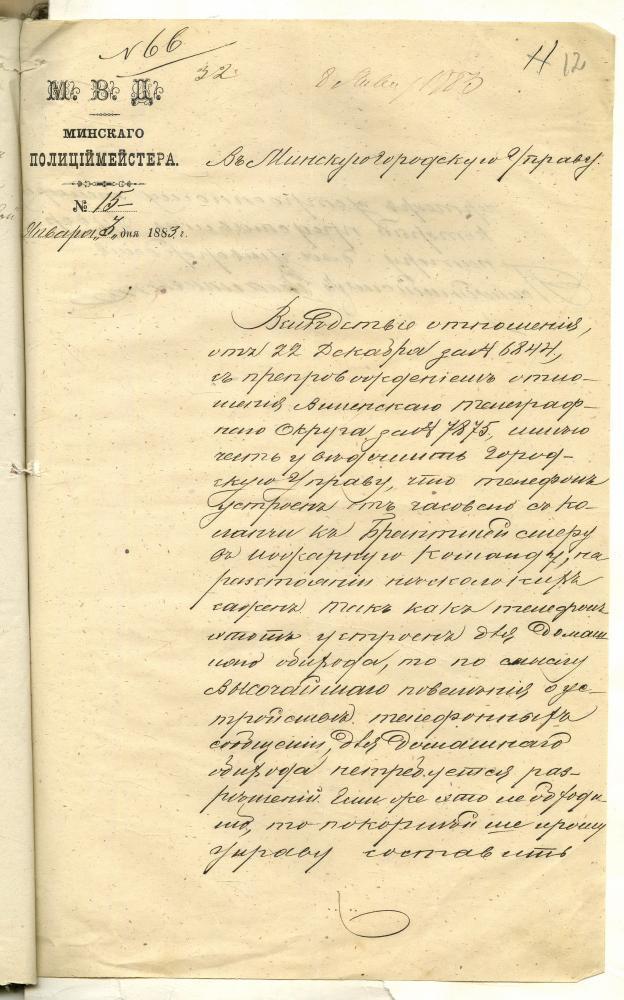 № 66
32
8 Янв 1883
11 12
М. В. Д.
МИНСКАГО
ПОЛИЦІЙМЕЙСТЕРА.
№ 15
Января „3„ дня 1883 г.
Въ Минскую Городскую Управу.
Вслѣдствіе отношенія,
отъ 22 Декабря за № 6844,
съ препровожденіемъ отно-
шенія Виленскаго Телеграф-
наго Округа за № 7875, имѣю
честь увѣдомить Город-
скую Управу, что телефонъ
устроенъ отъ часоваго съ ка-
ланчи къ Брантмейстеру
въ пожарную Команду, на
разстояніи нѣсколькихъ
саженъ такъ какъ телефонъ
этотъ устроенъ для Домаш
няго обихода, то по смыслу
Высочайшаго повелѣнія о ус-
тройствѣ телефонныхъ
сообщеній, для Домашняго
обихода нетребуется раз-
рѣшеній. Если же это необходи-
мо, то покорнѣйше прошу
Управу составить